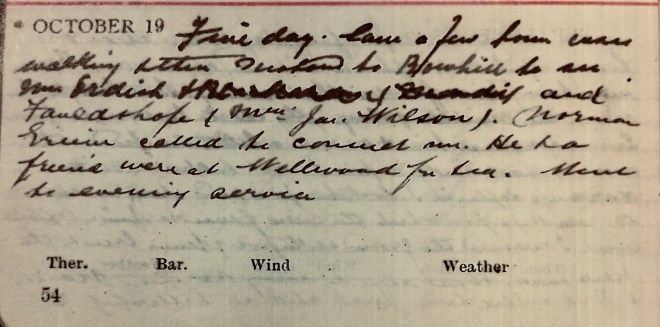 OCTOBER 19 Fine day. Saw a few hours
walking then motored to Bowhill to see
Mrs and
Fauldshope (Mrs Jas. Wilson). Norman
called to consult me. He & a
friend were at Wellwood for tea. Went
to evening service
Ther. Bar. Wind Weather
54